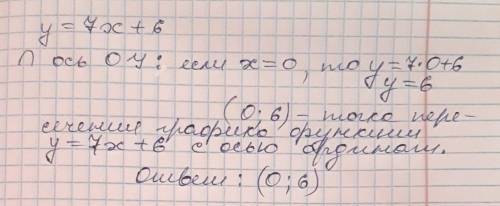 y = 7x + 6
∩ ось OY: если x=0, то y=7·0+6
y=6
(0; 6) - точка пере-
сечения графика функции
y=7x+6 с осью ординат.
Ответ: (0; 6)